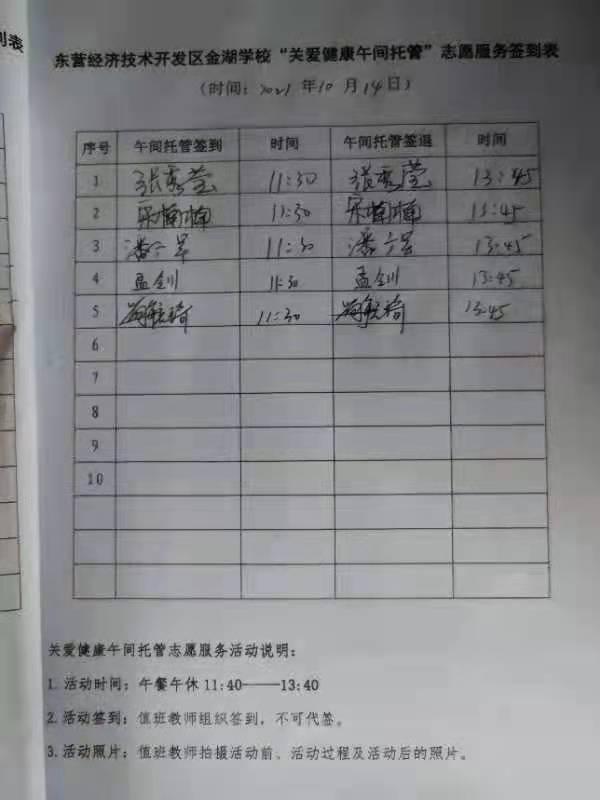 到表
东营经济技术开发区金湖学校“关爱健康午间托管”志愿服务签到表
(时间: 2021 年 10 月 14 日)
序号 午间托管签到 时间 午间托管签退 时间
1 张秀莹 11:30 张秀莹 13:45
2 楠楠 11:30 楠楠 13:45
3 潘 11:30 潘 13:45
4 孟钏 11:30 孟钏 13:45
5 航琦 11:30 航琦 13:45
6
7
8
9
10
关爱健康午间托管志愿服务活动说明:
1.活动时间: 午餐午休 11:40——13:40
2.活动签到: 值班教师组织签到,不可代签。
3.活动照片: 值班教师拍摄活动前、活动过程及活动后的照片。